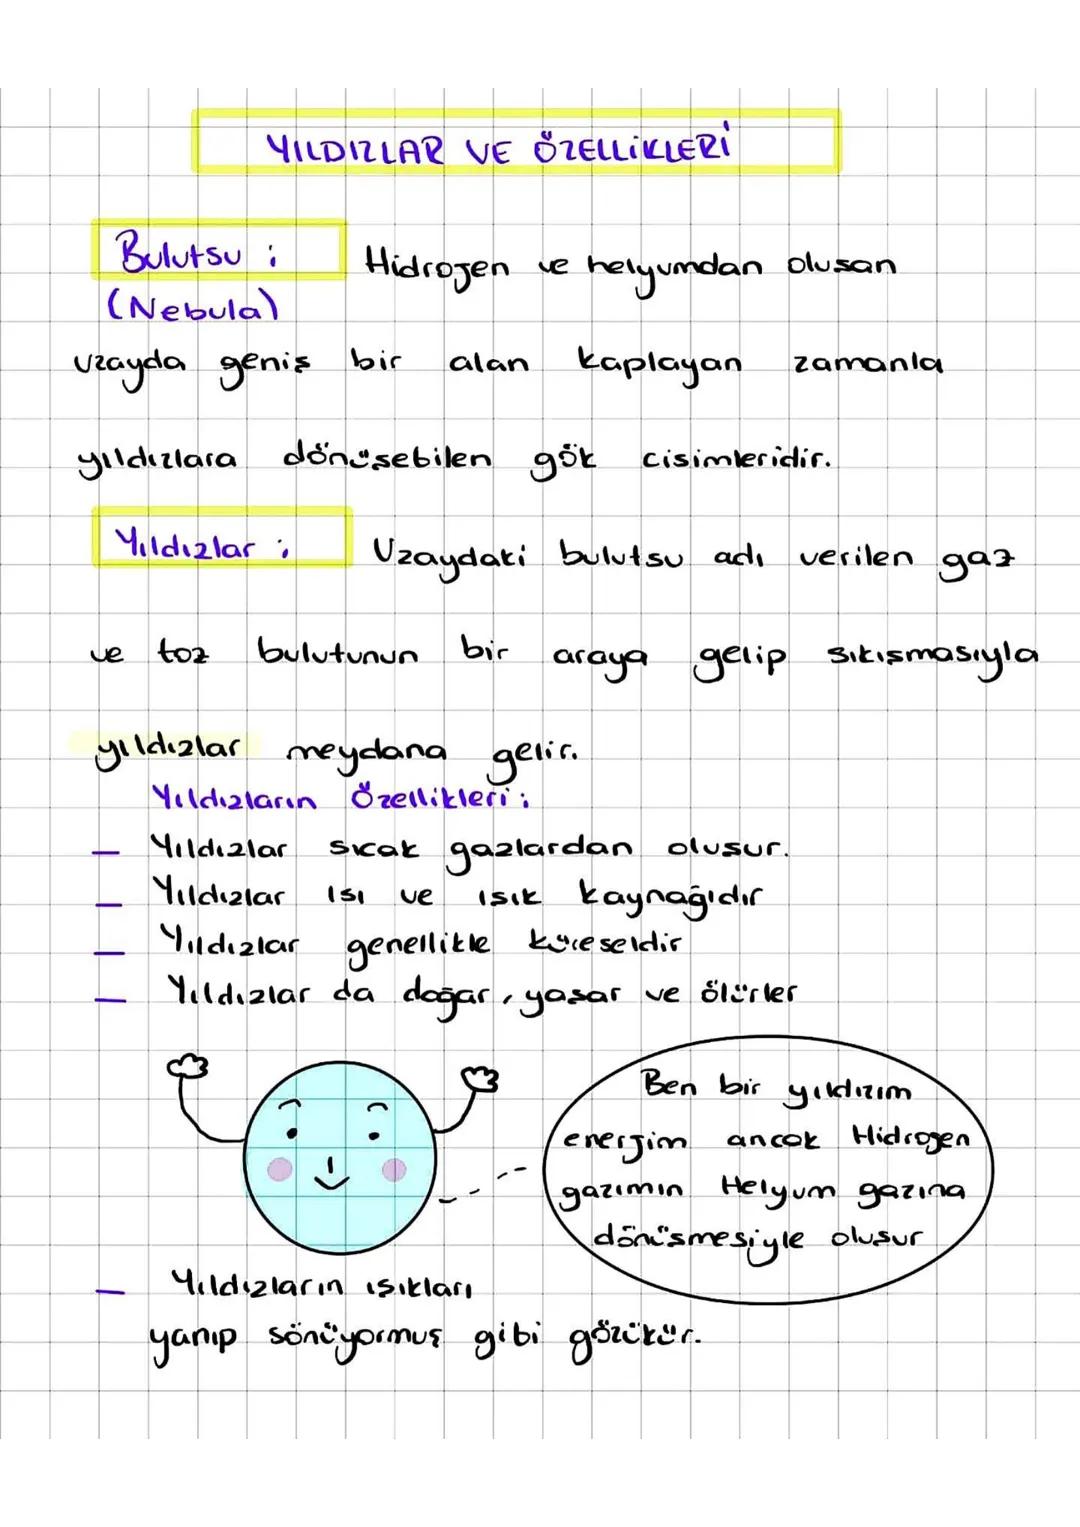 YILDIZLAR VE ÖZELLİKLERİ
Bulutsu : Hidrojen ve helyumdan oluşan
(Nebula)
uzayda geniş bir alan kaplayan zamanla
yıldızlara dönüşebilen gök cisimleridir.
Yıldızlar : Uzaydaki bulutsu adı verilen gaz
ve toz bulutunun bir araya gelip sıkışmasıyla
yıldızlar meydana gelir.
Yıldızların Özellikleri :
— Yıldızlar sıcak gazlardan oluşur.
— Yıldızlar ısı ve ışık kaynağıdır
— Yıldızlar genellikle küreseldir
— Yıldızlar da doğar, yaşar ve ölürler
Ben bir yıldızım
enerjim ancak Hidrojen
gazımın Helyum gazına
dönüşmesiyle oluşur
— Yıldızların ışıkları
yanıp sönüyormuş gibi gözükür.